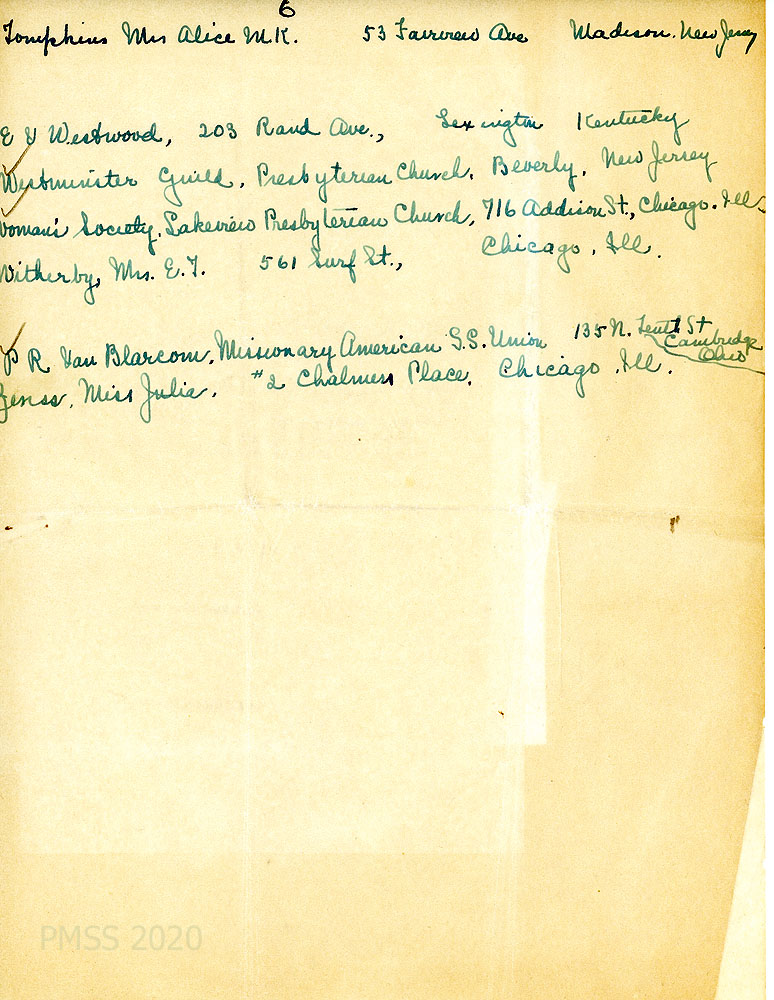 6
Tompkins Mrs Alice M.K. 53 Fairview Ave Madison. New Jersey
E & Westwood, 203 Rand Ave., Lexington Kentucky
Westminister Guild, Presbyterian Church, Beverly, New Jersey
Woman's Society, Lakeview Presbyterian Church, 716 Addison St., Chicago. Ill.
Witherby, Mrs. E.T. 561 Surf St., Chicago, Ill.
P R Van Blarcom, Missionary American S.S. Union 135 N. Tenth St
Cambridge
Ohio
Zenss, Miss Julia, #2 Chalmers Place, Chicago, Ill.
PMSS 2020